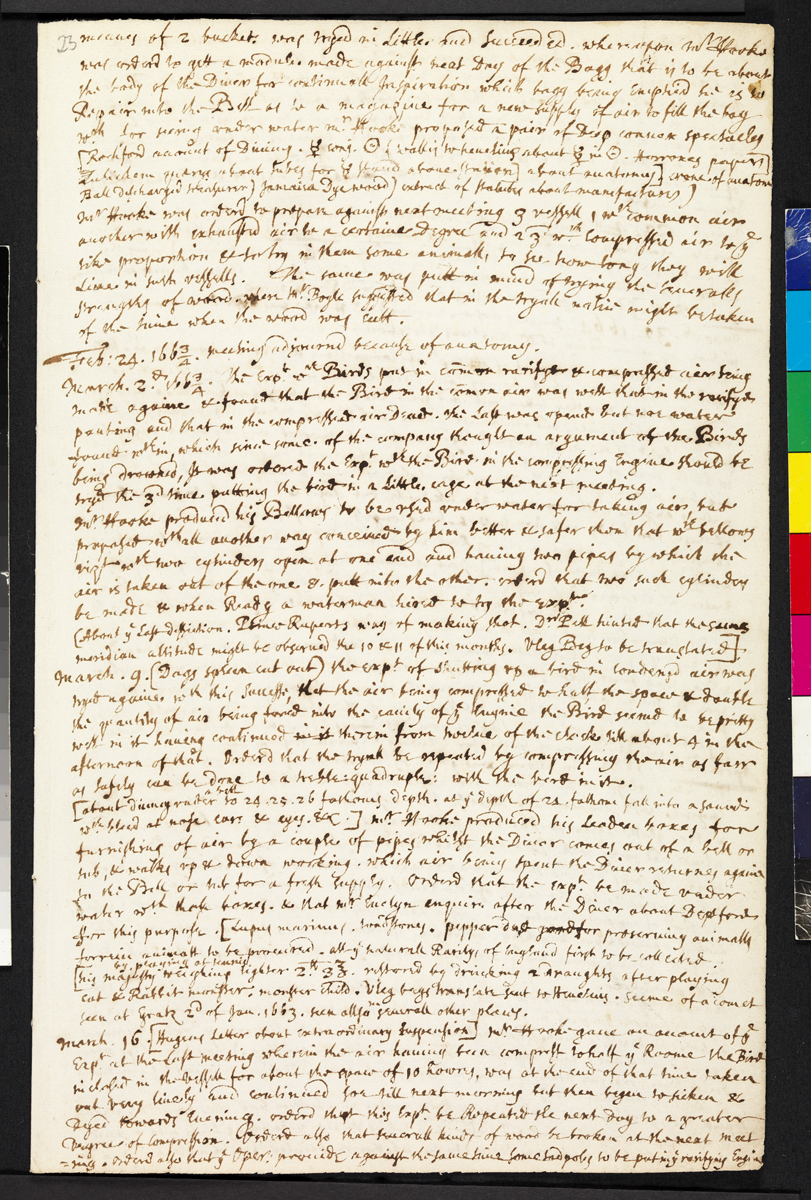 23 meanes of 2 buckets was tryed in Little. and Succeeded. whereupon Mr Hooke
was orderd to gett a module made against next Day of the Bagg that is to be about
the body of the Diver for continuall Inspiration which bagg being Emptied he is to
Repair into the Bell as to a magazine for a new supply of air to fill the bag
wth for seeing under water mr Hooke proposed a pair of Deep convex spectacles
[Rochford account of Dining. ☿ conj. ☉ (wallis to heuelius about ☿ in ☉. Horroxes papers]
Zulichem querys about tubes for ☿ stand aboue about anatomy]
Ball Discharged treasurer] Jamaica Dye wood] extract of statutes about manufactures]
Mr Hooke was orderd to prepare against next meeting 3 vessells 1 wth common air
another with exhausted air to a certaine Degree and a 3d wth compressed air to ye
like proportion & to try in them some animalls to see how long they will
Liue in such vessells. The same was putt in mind of trying the seueralls
strengths of wood. when Mr Boyle suggested that in the tryall notice might be taken
of the time when the wood was cutt.
Feb: 24. 1663/4. meeting adjournd because of anatomy.
March. 2d 1663/4. The Expt wth Birds put in common rarifyd & compressed air being
made againe & found that the Bird in the comon air was well that in the rarifyd
panting and that in the compressed air Dead. the Last was opend but noe water
found wthin, which since some of the company thought an argument of the Birds
being drowned, It was ordered the Expt wth the Bird in the compressing Engine should be
tryd the 3d time putting the bird in a Little cage at the next meeting.
Mr Hooke produced his Bellows to be used under water for taking air, but
proposed wthall another way conceiued by him better & safer then that wth bellows
vizt wth two cylinders open at one end and hauing two pipes by which the
air is taken out of the one & putt into the other. orderd that two such cylinders
be made & when Ready a waterman hired to try the expt.
(About ye Last diffiction. Prince Ruperts way of making shot. Dr Pell hinted that the suns
meridian altitude might be obserued the 10 & 11 of this month. Vleg Beg to be translated]
March. 9. [Dogs spleen cut out) the expt of shutting up a bird in condensd air was
tryd againe. wth this successe, that the air being compressed to half the space & double
the quantity of air being forced into the cauity of ye Engine the Bird seemd to be pretty
well in it hauing continued in it therein from twelue of the clock till about 4 in the
afternoon of that. Orderd that the tryall be repeated by compressing the air as farr
as safely can be done to a treble: quadruple: with the bird in it.
[about diving under a bell to 24. 25. 26 fathoms depth. at ye depth of 24 fathom fall into a sound
wth bleed at nose ears & eyes. &c.] Mr Hooke produced his Leaden boxes for
furnishing of air by a couple of pipes whilst the Diver comes out of a bell or
tub, & walks up & down working. which air being spent the Diver returnes againe
to the Bell or tub for a fresh supply. Orderd that the expt be made under
water wth those boxes. & that mr Euelyn enquire after the Diver about Deptford
for this purpose. [Lupus marinus. toadstones. pepper dust for preseruing animalls
forrein animalls to be procured. all ye naturall Rarityes of England first to be collected.
[his majesty by playing at tennis weighing lighter restored by drincking 2 draughts after playing
cat & Rabbit monster. monster child. Vleg begs translate sent to Heuelius. seeme of a comet
seen at Gratz 2d of Jan. 1663. seen allso in seuerall other places.
March. 16. [Hugens Letter about extraordinary suspension] mr Hooke gaue an account of ye
Expt at the Last meeting wherein the air hauing been comprest to half ye Roome the Bird
inclosed in the vessell for about the space of 10 howers, was at the end of that time taken
out very liuely and continued soe till next morning but then began to sicken &
Dyed towards Euening. orderd that this Expt be Repeated the next Day to a greater
Degree of compression. Orderd also that seuerall kinds of wood be broken at the next meet
=ing. orderd also that ye Oper. prouide against the same time some tadpoles to be put in ye rarifying Engine